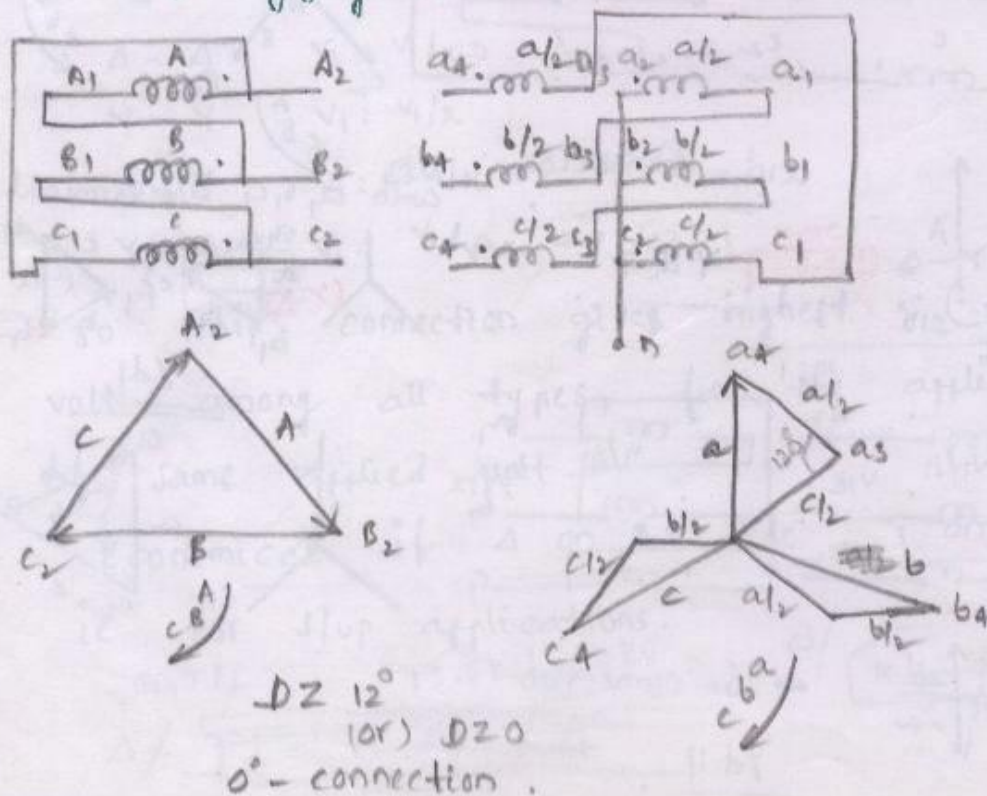 A1 A A2
B1 B B2
C1 C C2
a4 a/2 a3 a2 a/2 a1
b4 b/2 b3 b2 b/2 b1
c4 c/2 c3 c2 c/2 c1
n
A2
C A
C2 B B2
A
B
C
a4
a/2
a a3
c/2
b/2
c/2 c a/2 b
b/2 b4
c4
a
b
c
DZ 12°
(or) DZ0
0° - connection.